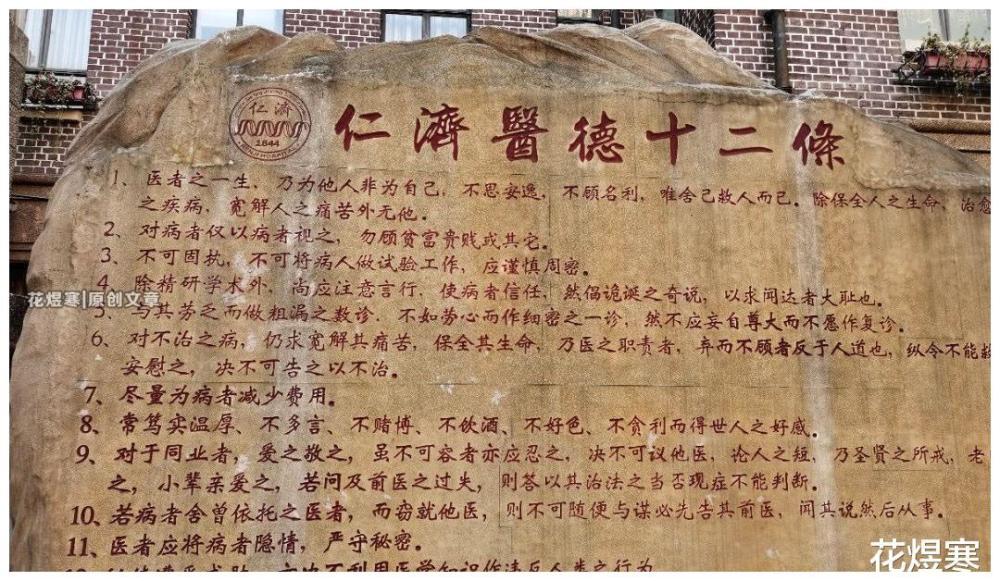 仁濟
1844
仁濟醫德十二條
1、医者之一生，乃为他人非为自己，不思安逸，不顾名利，唯舍己救人而已。除保全人之生命，治愈
之疾病，宽解人之痛苦外无他。
2、对病者仅以病者视之，勿顾贫富贵贱或其它。
3、不可固执，不可将病人做试验工作，应谨慎周密。
4、除精研学术外，尚应注意言行，使病者信任，然倡诡诞之奇说，以求闻达者大耻也。
花煜寒|原创文章
5、与其劳乏而做粗漏之数诊，不如劳心而作细密之一诊，然不应妄自尊大而不愿作复诊。
6、对不治之病，仍求宽解其痛苦，保全其生命，乃医之职责者，弃而不顾者反于人道也，纵令不能救
安慰之，决不可告之以不治。
7、尽量为病者减少费用。
8、常笃实温厚、不多言、不赌博、不饮酒、不好色、不贪利而得世人之好感。
9、对于同业者，爱之敬之，虽不可容者亦应忍之，决不可议他医，论人之短，乃圣贤之所戒，老
之，小辈亲爱之，若问及前医之过失，则答以其治法之当否现症不能判断。
10、若病者舍曾依托之医者，而窃就他医，则不可随便与谋必先告其前医，闻其说然后从事。
11、医者应将病者隐情，严守秘密。
亦决不利用医学知识作违反人类之行为
花煜寒